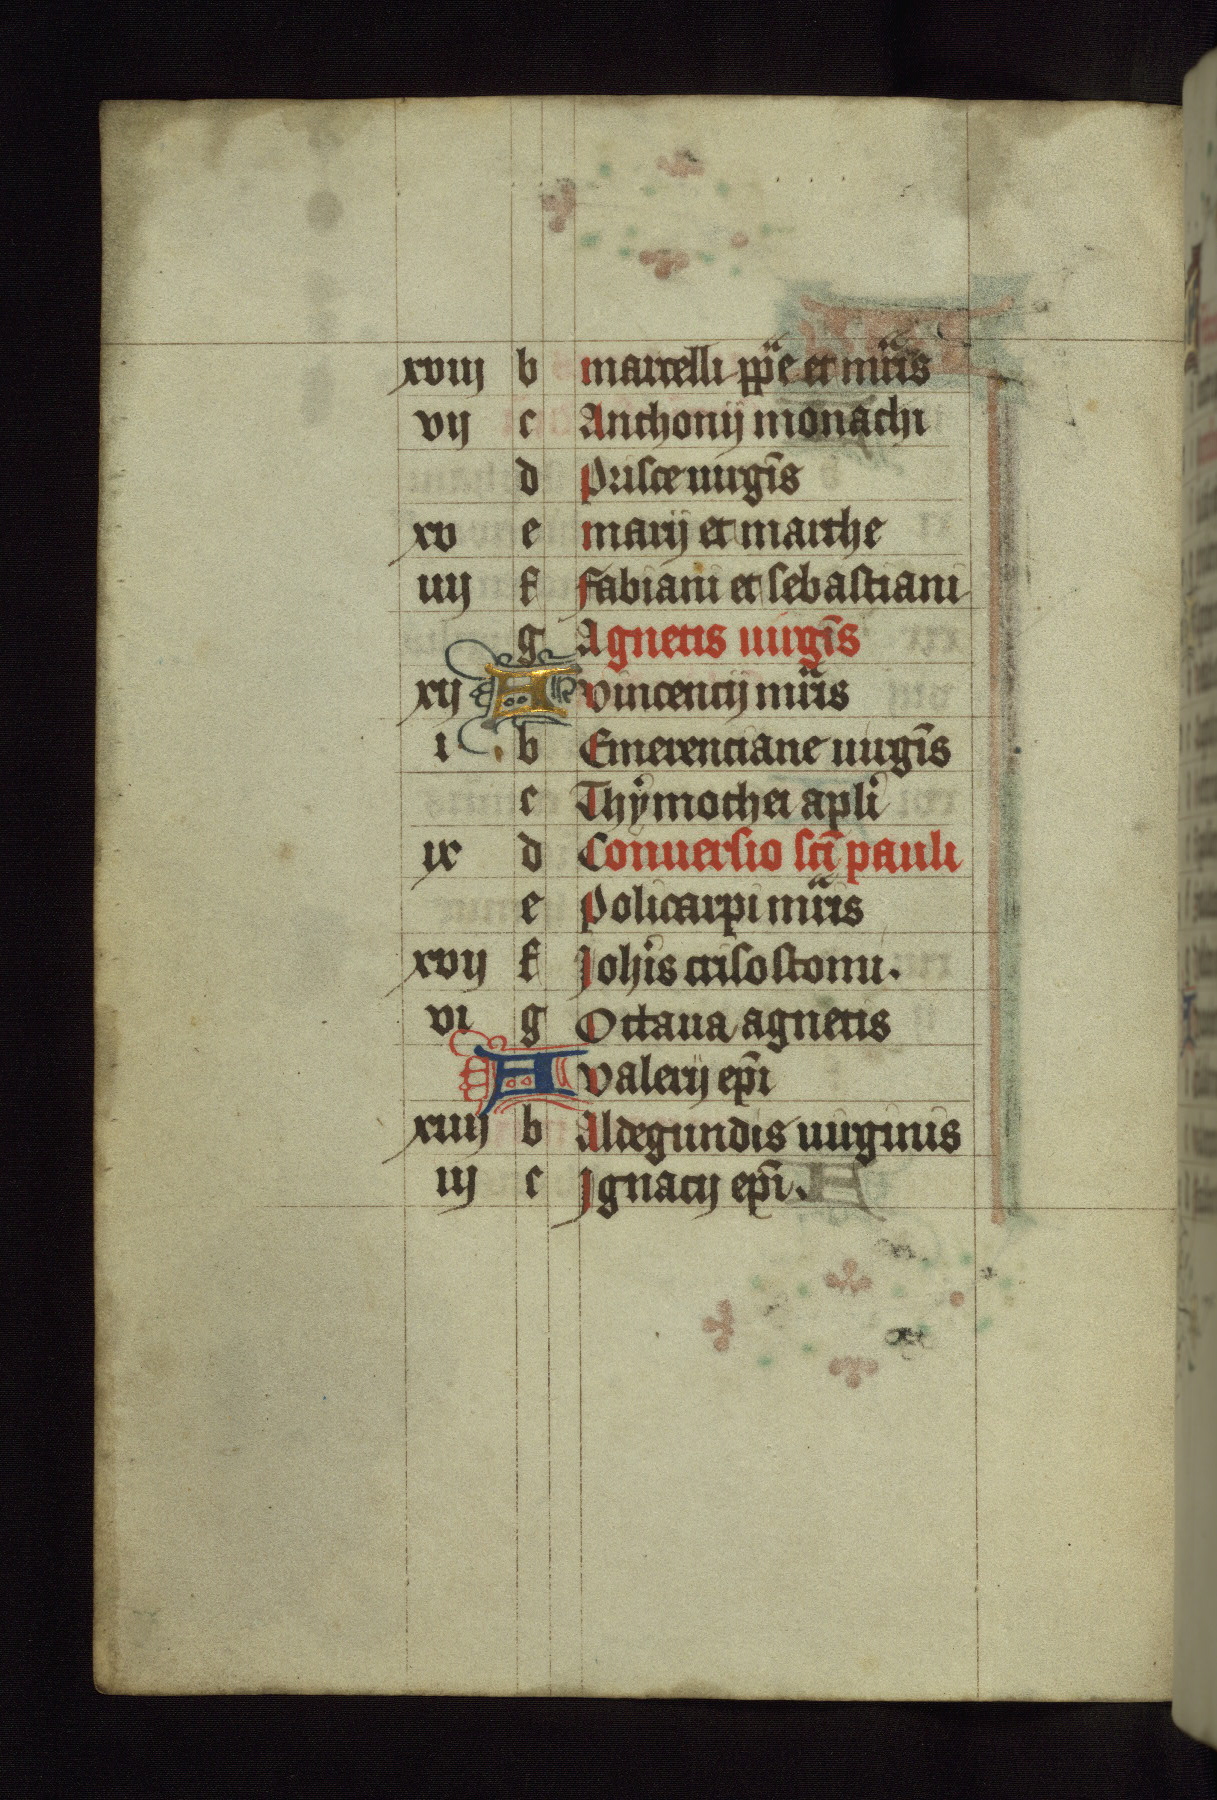 xviij b marcelli ppe et mris
vij c Anthonij monachi
d Prisce uirgis
xv e marij et marthe
iiij f Fabiani et sebastiani
g Agnetis uirgis
xij A vincencij mris
i b Emerenciane uirgis
c Thymothei apli
ix d Conuersio sci pauli
e Policarpi mris
xvij f Johis crisostomi.
vi g Octaua agnetis
A valerij epi
xiiij b Aldegundis uirginis
iij c Ignacij epi.